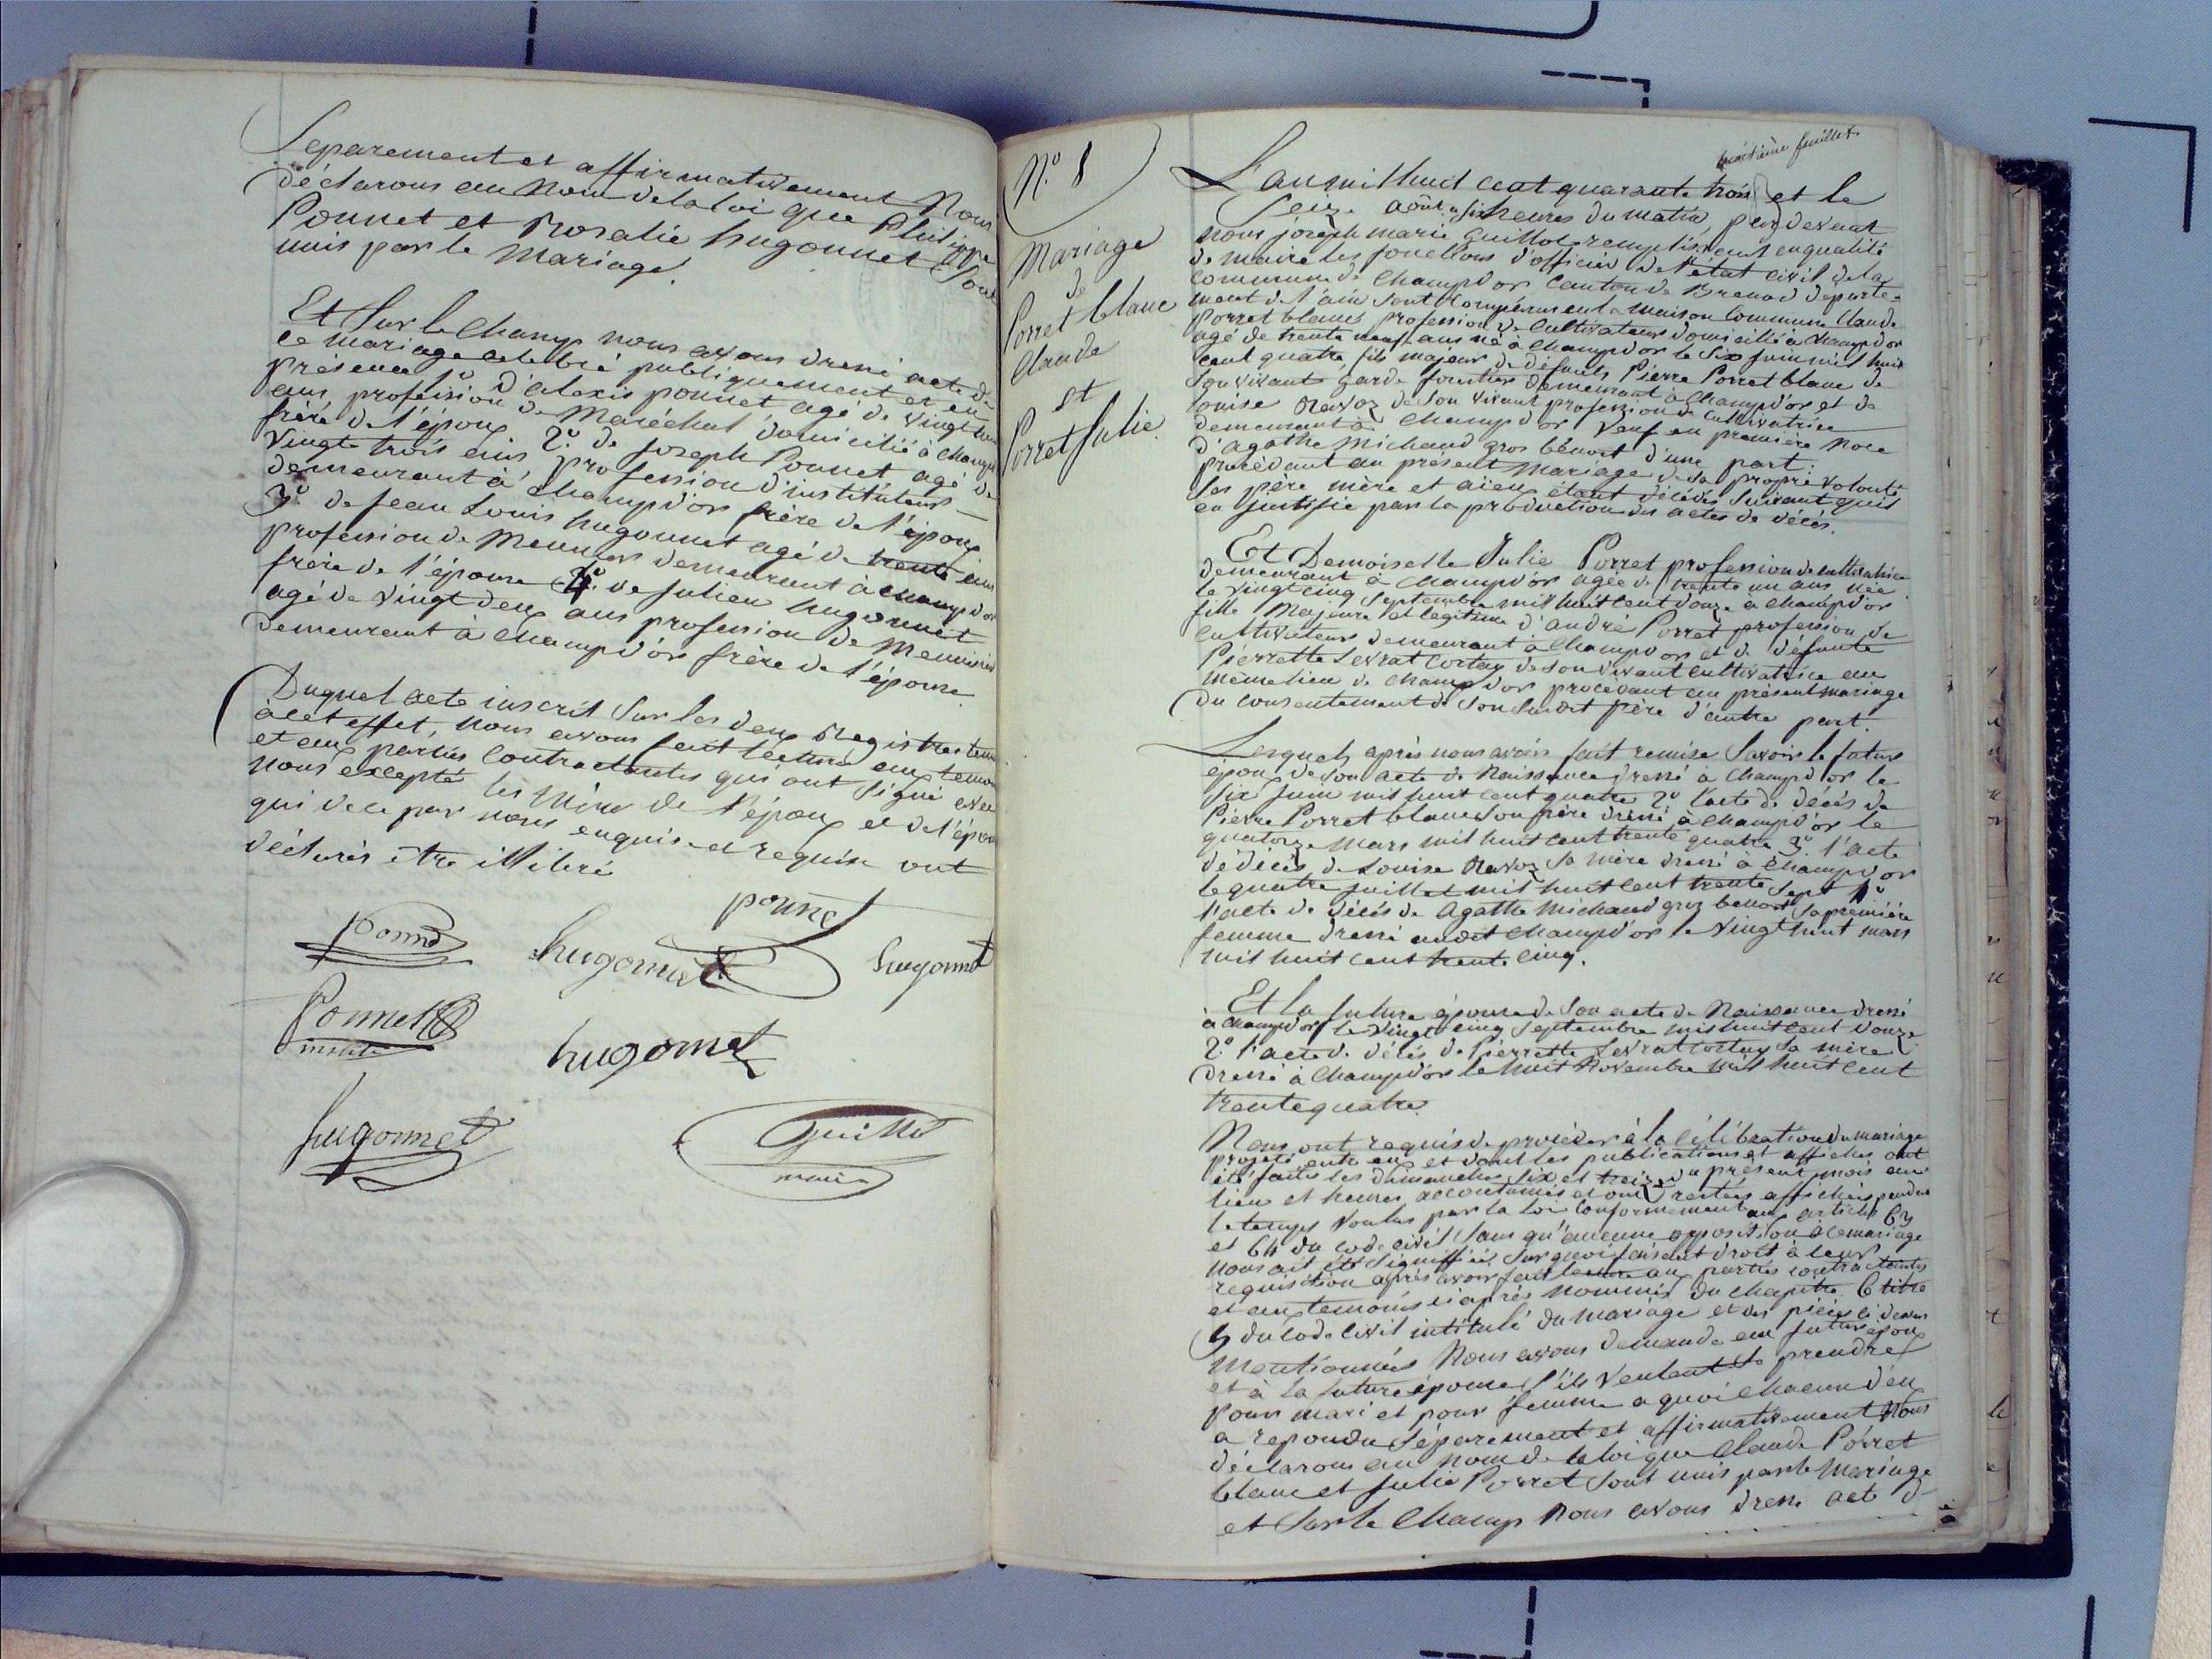 Separement et affirmativement Nous
déclarons au Nom de la loi que Philippe
Ponnet et Rosalie hugonnet Sont
unis par le Mariage.
Et Sur le Champ nous avons dressé acte de
ce mariage celebré publiquement et en
présence 1º d'alexis ponnet agé de vingt
ans, profession de Maréchal domicilié à Champd'or
frère de l'époux 2º de Joseph Ponnet agé de
Vingt trois ans profession d'instituteur
demeurant à Champd'or frère de l'époux
3º de Jean Louis hugonnet agé de trente ans
profession de Meunier demeurant à Champd'or
frère de l'épouse 4º de Julien hugonnet
agé de vingt deux ans profession de Meunier
demeurant à Champd'or frère de l'épouse
Duquel acte inscrit Sur les deux Registres tenu
à cet effet, nous avons fait lecture aux temoins
et aux parties Contractantes qui ont Signé avec
nous excepté les Mères de l'époux et de l'épouse
qui de ce par nous enquise et requise ont
déclarés être illiteré
ponnet
ponnet
hugonnet
hugonnet
Ponnet
hugonnet
hugonnet
Guillot
maire
huitième feuillet
Nº 8
Mariage
de
Porret blanc
Claude
et
Porret Julie
L'an mil huit cent quarante trois et le
Seize août à six heures du matin pardevant
nous joseph marie Guillot remplissant en qualité
de maire les fonctions d'officier de l'état civil de la
commune de Champd'or Canton de Brenod departe-
ment de l'ain Sont comparus en la maison Commune Claude
porret blanc profession de Cultivateur domicilié à Champd'or
agé de trente neuf ans né à Champd'or le Six Juin mil huit
cent quatre fils majeur de défunts Pierre Porret blanc de
Son vivant garde forestier demeurant à Champd'or et de
Louise Ravoz de Son vivant profession de Cultivatrice
demeurant à Champd'or Veuf en première Noce
d'Agathe Michaud gros bénoit d'une part:
procédant au présent Mariage de Sa propre volonté
Ses père mère et aïeux étant décédés Suivant qu'il
en justifie par la production des actes de décés.
Et Demoiselle Julie Porret profession de cultivatrice
demeurant à Champd'or agée de trente un ans née
le vingt cinq Septembre mil huit cent douze à Champd'or
fille Majeure et legitime d'andré Porret profession de
Cultivateur demeurant à Champd'or et de défunte
Pierrette Levrat Cortay de Son vivant cultivatrice au
même lieu de Champd'or procédant au présent mariage
du consentement de Son Susdit père d'autre part
Lesquels après nous avoir fait remise Savoir le futur
époux de Son acte de Naissance dressé à Champd'or le
Six Juin mil huit cent quatre 2º l'acte de décés de
Pierre Porret blanc Son père dressé à Champd'or le
quatorze Mars mil huit cent trente quatre 3º l'acte
de décés de Louise Ravoz Sa mère dressé à Champd'or
le quatre juillet mil huit cent trente Sept 4º
l'acte de décés de Agathe Michaud groz benoit Sa première
femme dressé audit Champd'or le Vingt huit mars
mil huit cent trente cinq.
Et la future épouse de Son acte de Naissance dressé
à Champd'or le Vingt cinq Septembre mil huit cent douze
2º l'acte de décés de Pierrette Levrat Cortay Sa mère
dressé à Champd'or le huit Novembre mil huit cent
trente quatre.
Nous ont requis de procéder à la célébration du mariage
projeté entre eux et dont les publications et affiches ont
été faites les dimanches Six et treize du présent mois aux
lieu et heures accoutumés et ont restées affichées pendant
le temps voulus par la loi conformement aux articles 63
et 64 du Code civil Sans qu'aucune opposition à ce mariage
nous ait été Signifiée Sur quoi faisant droit à leur
requisition après avoir fait lecture aux parties contractantes
et aux temoins ci après nommés du Chapitre 6 titre
5 du Code Civil intitulé du Mariage et des pièces ci dessus
Mentionnées Nous avons demandé au futur époux
et à la future épouse S'ils veulent Se prendre
pour mari et pour femme a quoi chacun d'eux
a repondu Séparement et affirmativement Nous
déclarons au nom de la loi que Claude Porret
blanc et Julie Porret Sont unis par le Mariage
et Sur le Champ Nous avons dressé acte de